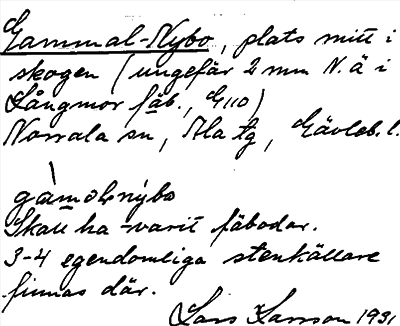 Gammal-Nybo, plats mitt i
skogen (ungefär 2 mm N. ä i
Långmor fäb., G110)
Norrala sn, Ala tg, Gävleb. l.
gàmalnýbo
Skall ha varit fäbodar.
3-4 egendomliga stenkällare
finnas där.
Lars Larsson 1931